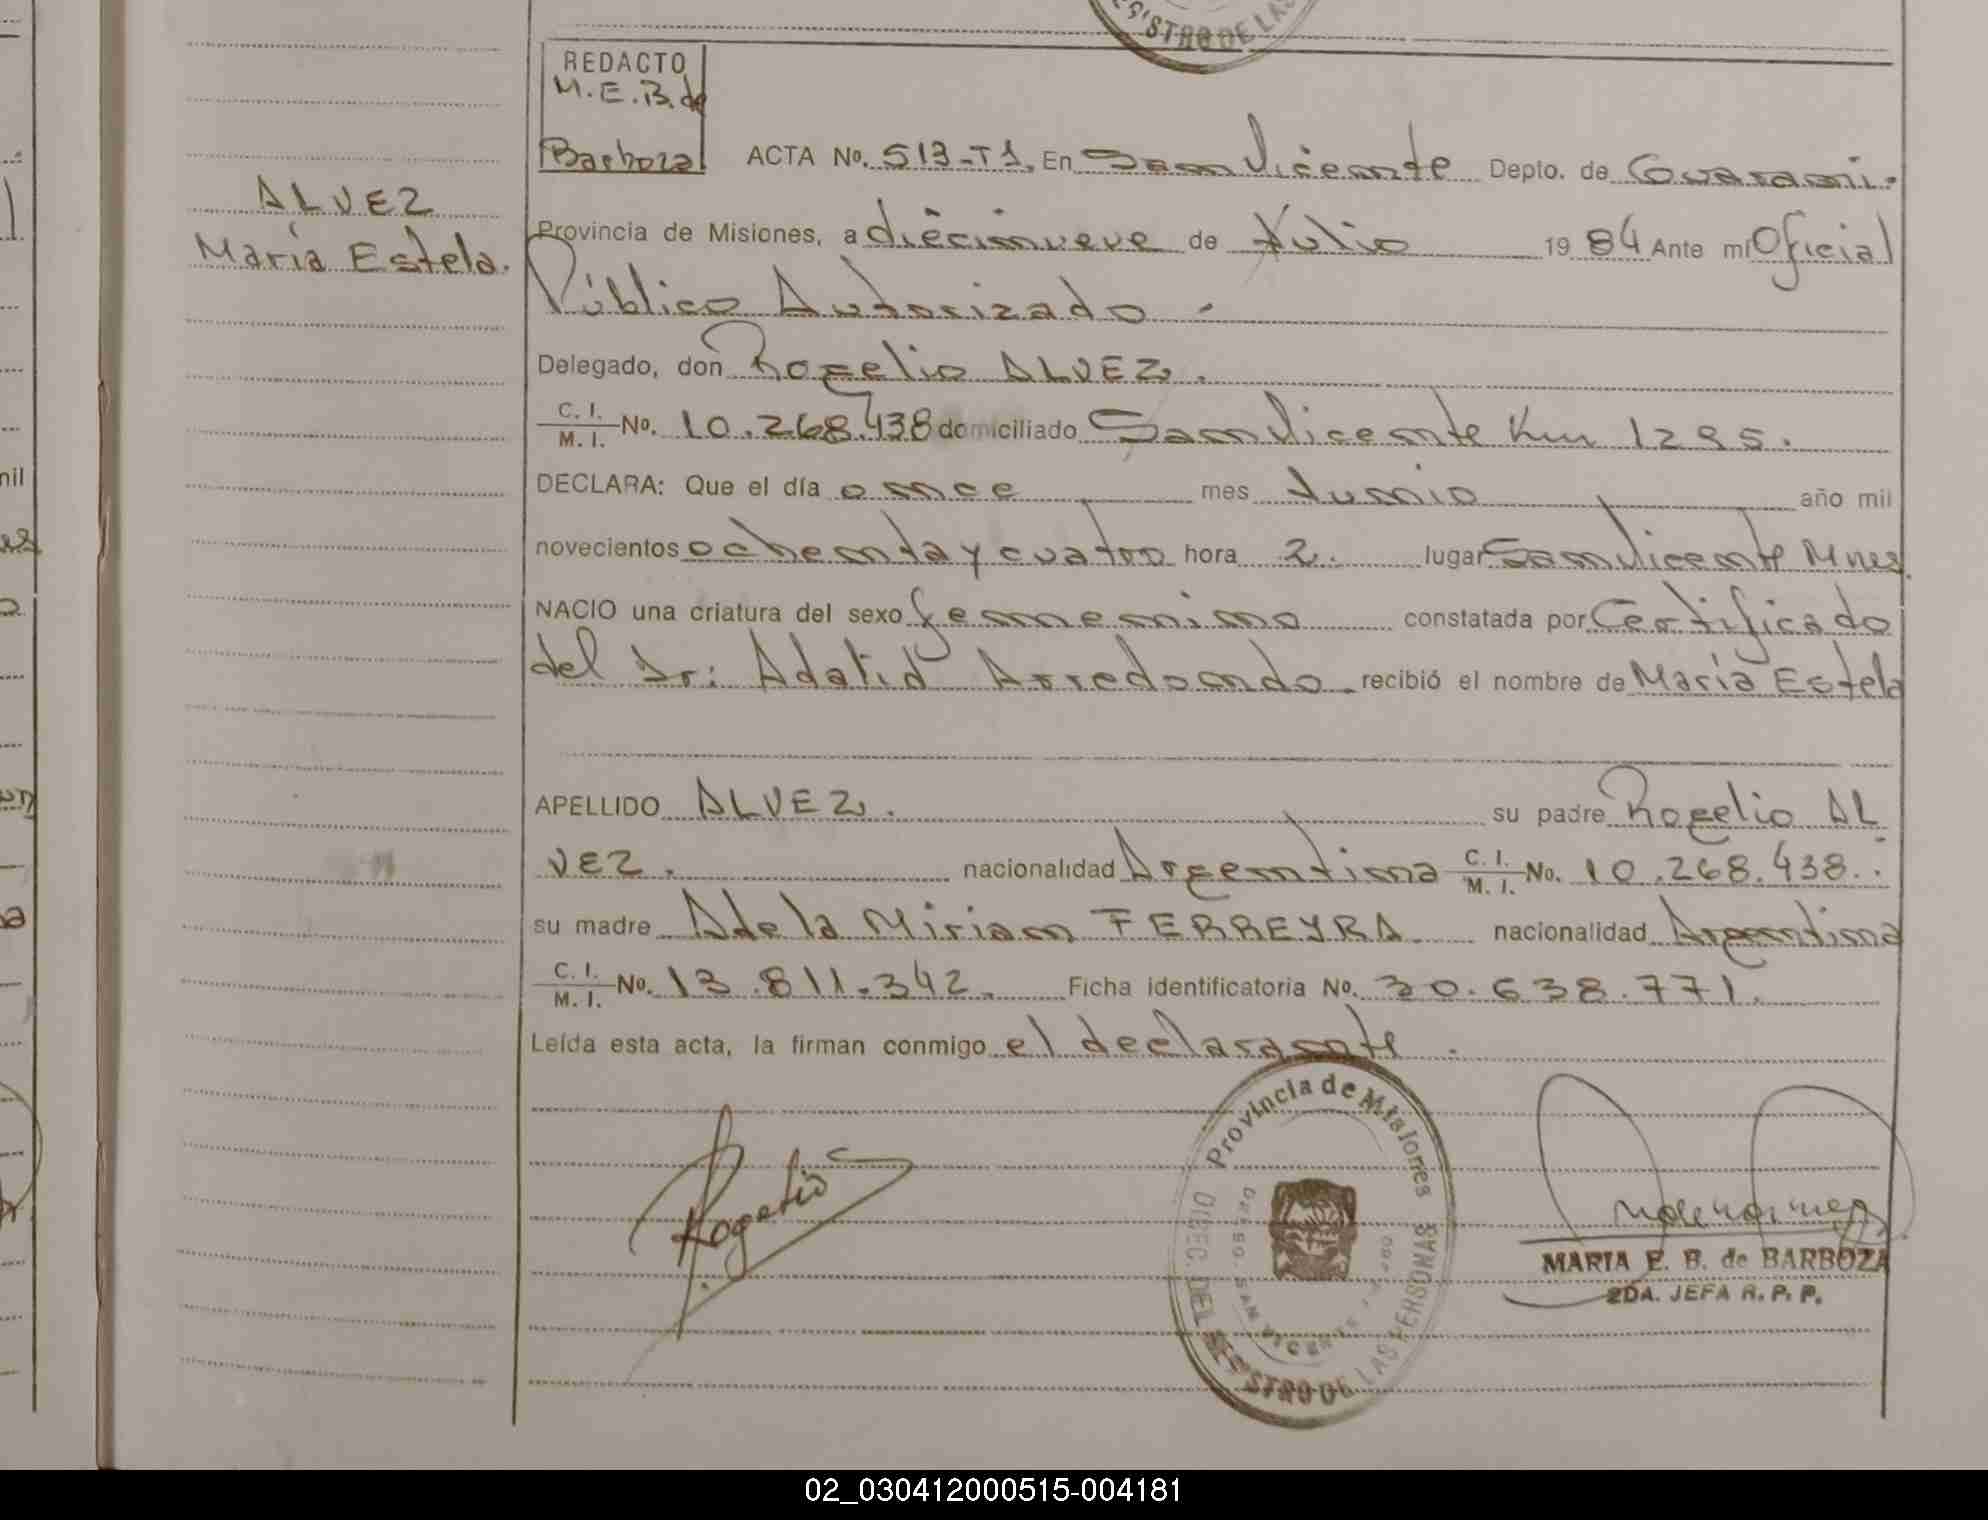 REGISTRO DE LAS
REDACTO
M.E.B. de
Barboza
ACTA No. 513-T1. En San Vicente Depto. de Guaraní.
ALVEZ
María Estela.
Provincia de Misiones, a diecinueve de Julio 1984 Ante mí Oficial
Público Autorizado -
Delegado, don Rogelio ALVEZ.
C. I.
M. I. No. 10.268.438 domiciliado San Vicente Km 1285.
DECLARA: Que el día once mes Junio año mil
novecientos ochenta y cuatro hora 2. lugar San Vicente Mnes.
NACIO una criatura del sexo femenino constatada por Certificado
del Dr: Adatid Arredondo. recibió el nombre de María Estela
APELLIDO ALVEZ. su padre Rogelio AL
VEZ. nacionalidad Argentina C. I.
M. I. No. 10.268.438.
su madre Adela Miriam FERREYRA nacionalidad Argentina
C. I.
M. I. No. 13.811.342. Ficha identificatoria No. 30.638.771.
Leída esta acta, la firman conmigo el declarante.
Rogelio
Provincia de Misiones
DIREC. DEL REGISTRO DE LAS PERSONAS
SAN VICENTE
MARIA E. B. de BARBOZA
2DA. JEFA R. P. P.
02_030412000515-004181